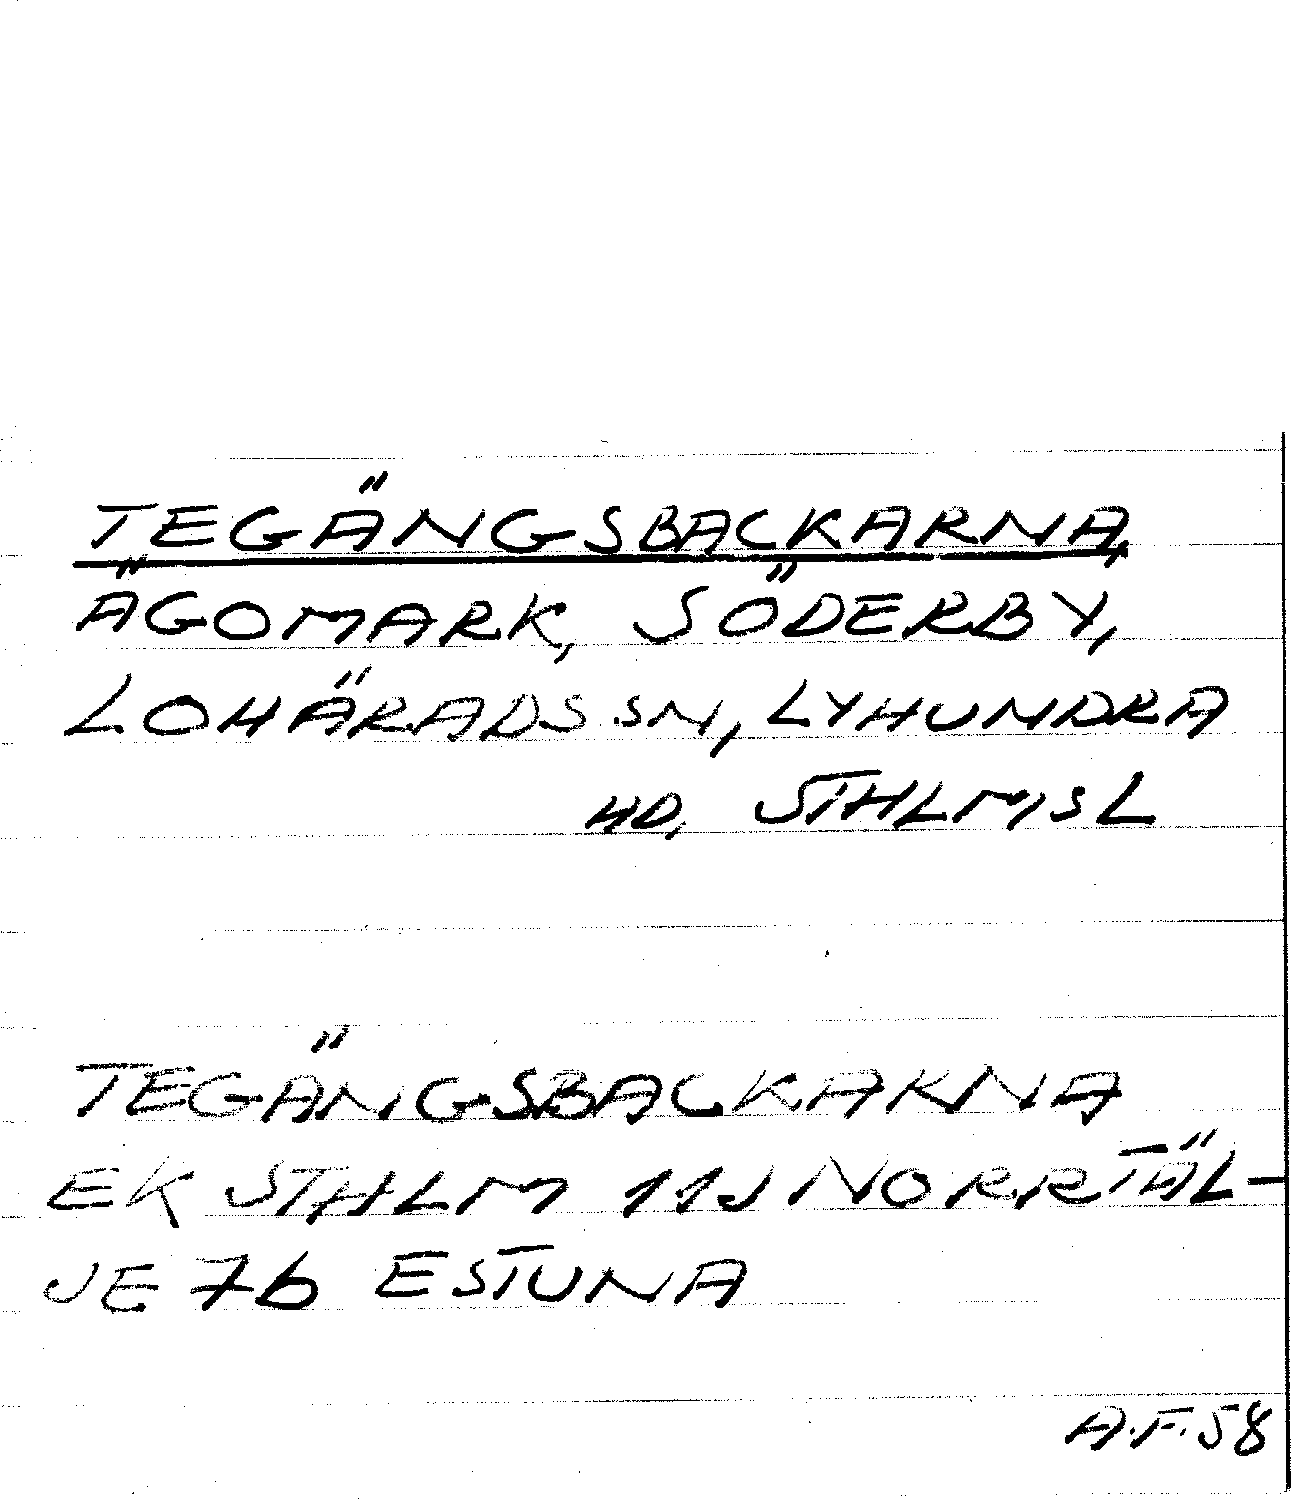 TEGÄNGSBACKARNA,
ÄGOMARK, SÖDERBY,
LOHÄRADS SN, LYHUNDRA
HD, STHLMSL
TEGÄNGSBACKARNA
EK STHLM 11J NORRTÄL-
JE 7b ESTUNA
A.F.58